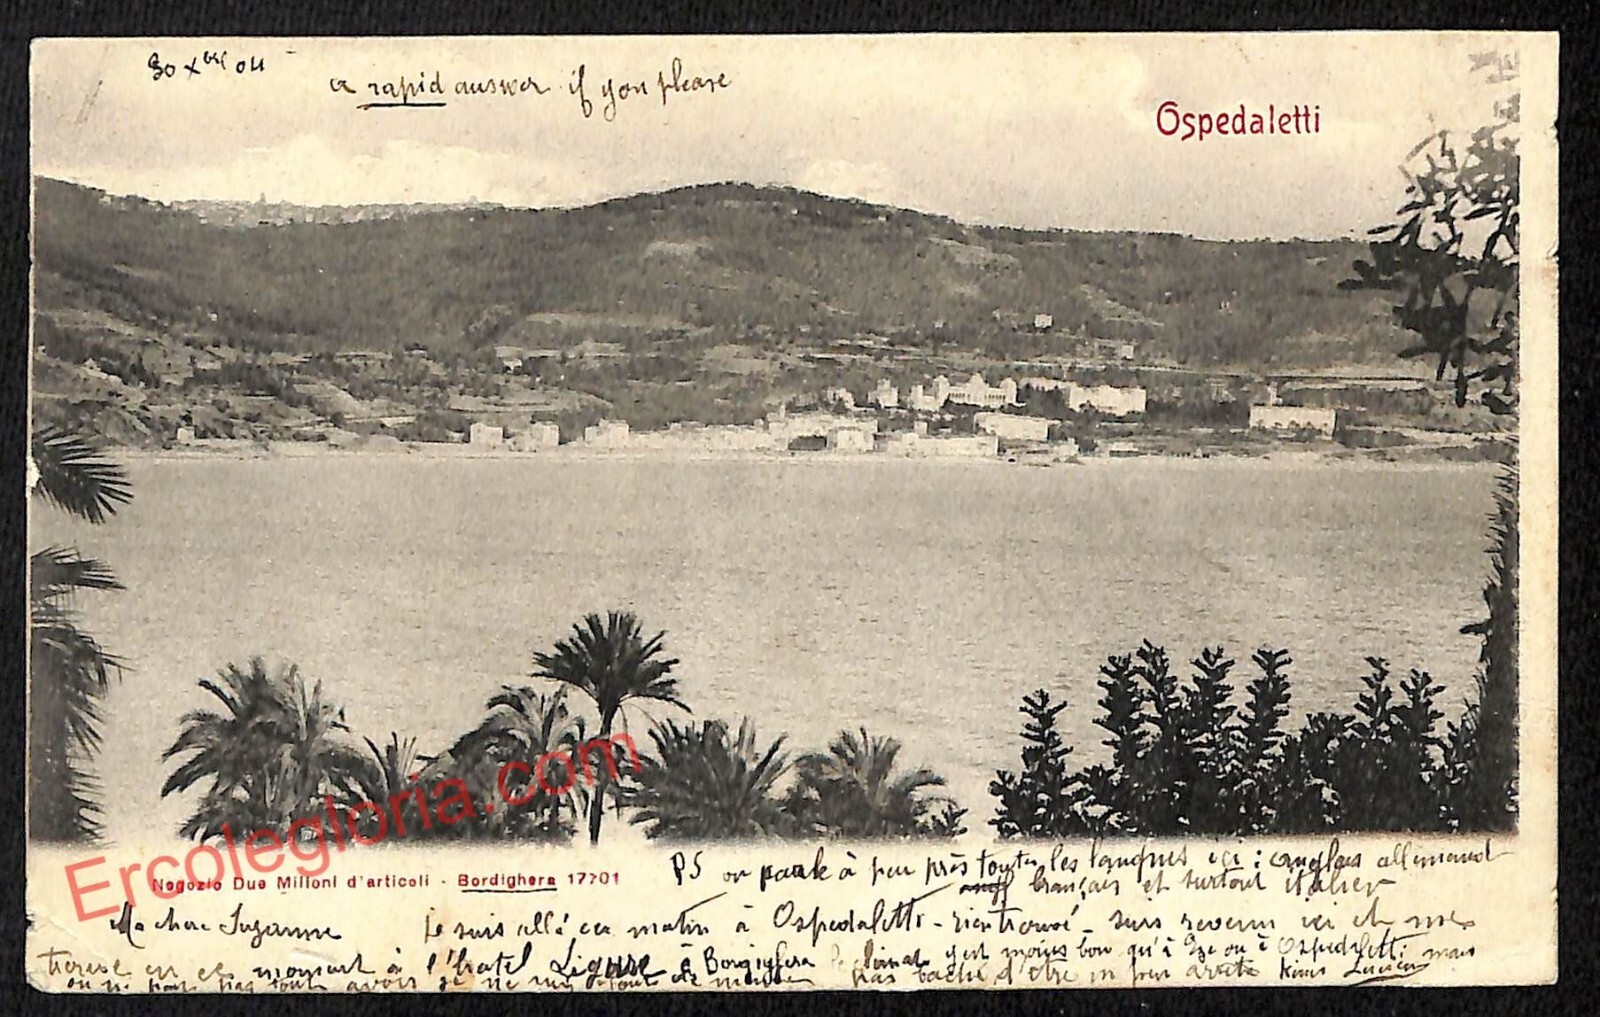 30 Xbre 04
a rapid answer if you please
Ospedaletti
Ercolegloria.com
Negozio Due Milioni d'articoli - Bordighera 17701
PS on parle à peu près toutes les langues ici : anglais allemand
français et surtout italien
Ma chère Suzanne Je suis allé ce matin à Ospedaletti - rien trouvé - suis revenu ici et me
trouve en ce moment à l'hotel Ligure à Bordighera le climat y est moins bon qu'à Èze ou à Ospedaletti mais
on ne peut pas tout avoir je ne suis pas fâché d'être un peu arrêté